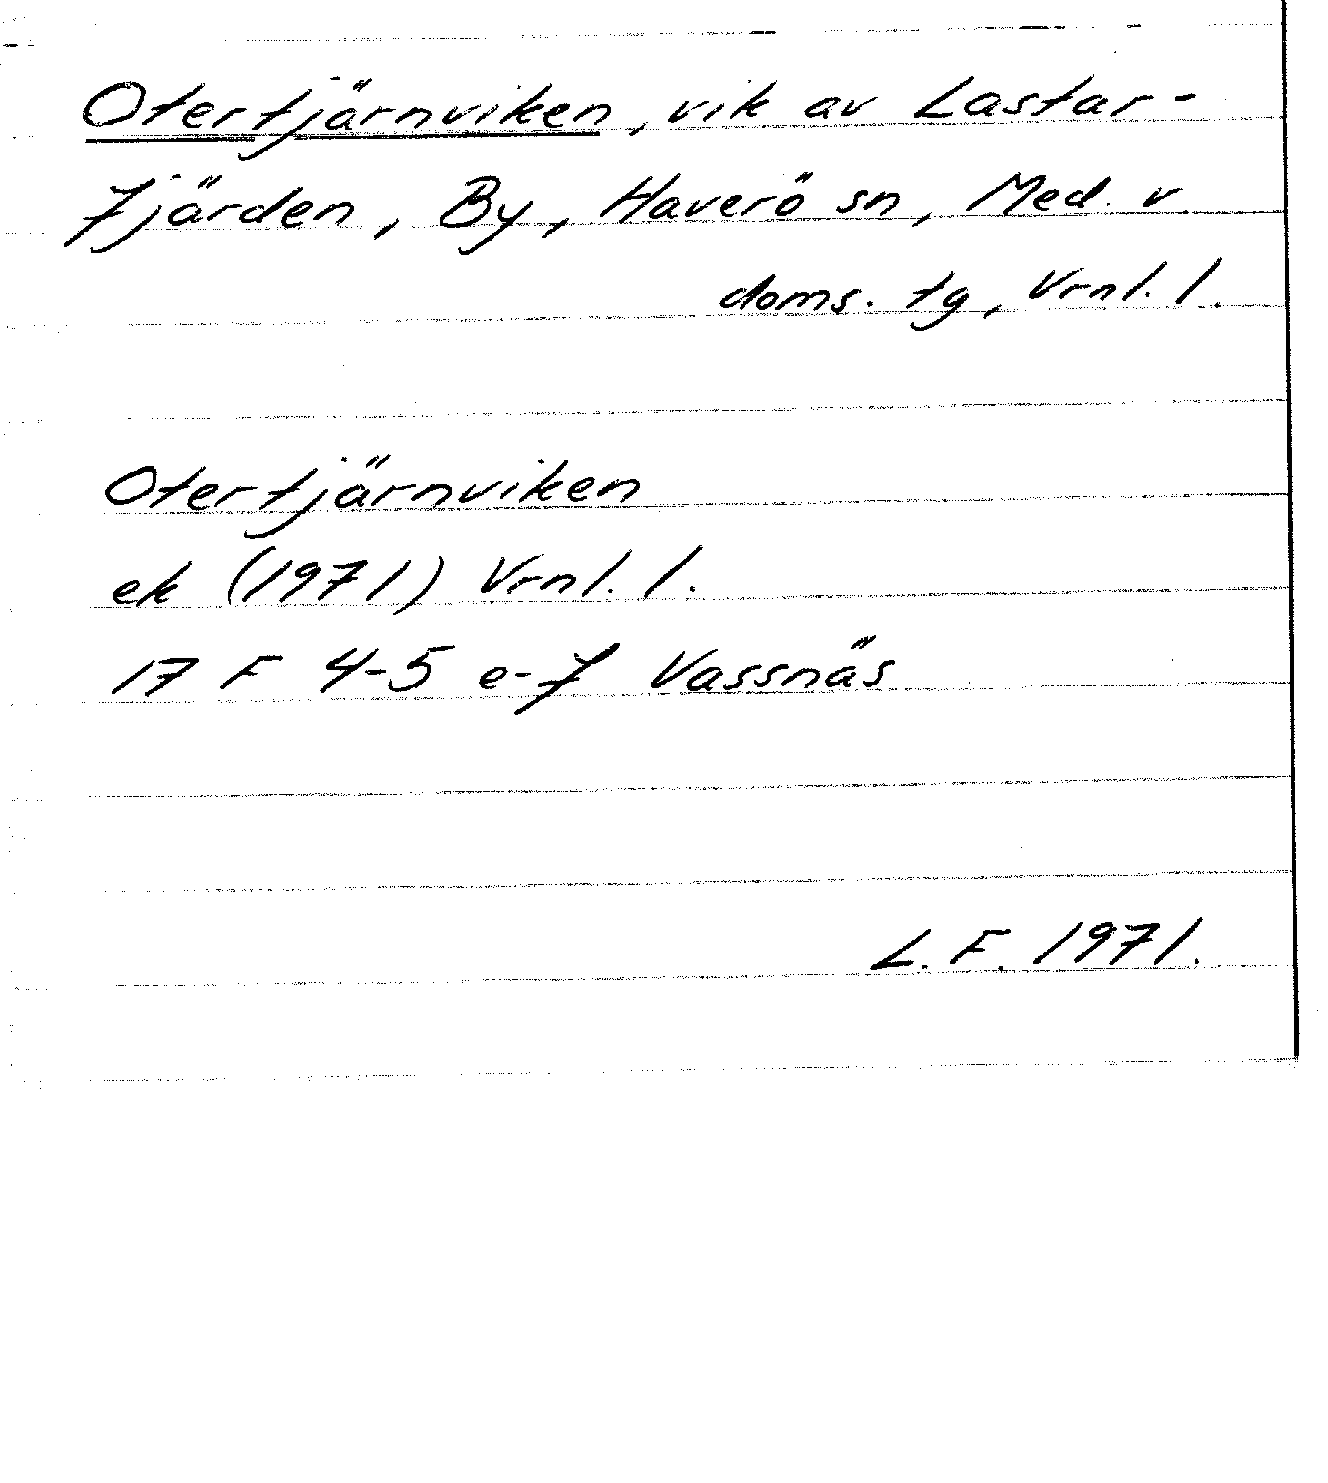 Otertjärnviken, vik av Lastar-
fjärden, By, Haverö sn, Med. v
doms. tg, Vrnl. l.
Otertjärnviken
ek (1971) Vrnl. l.
17 F 4-5 e-f Vassnäs
L. F. 1971.